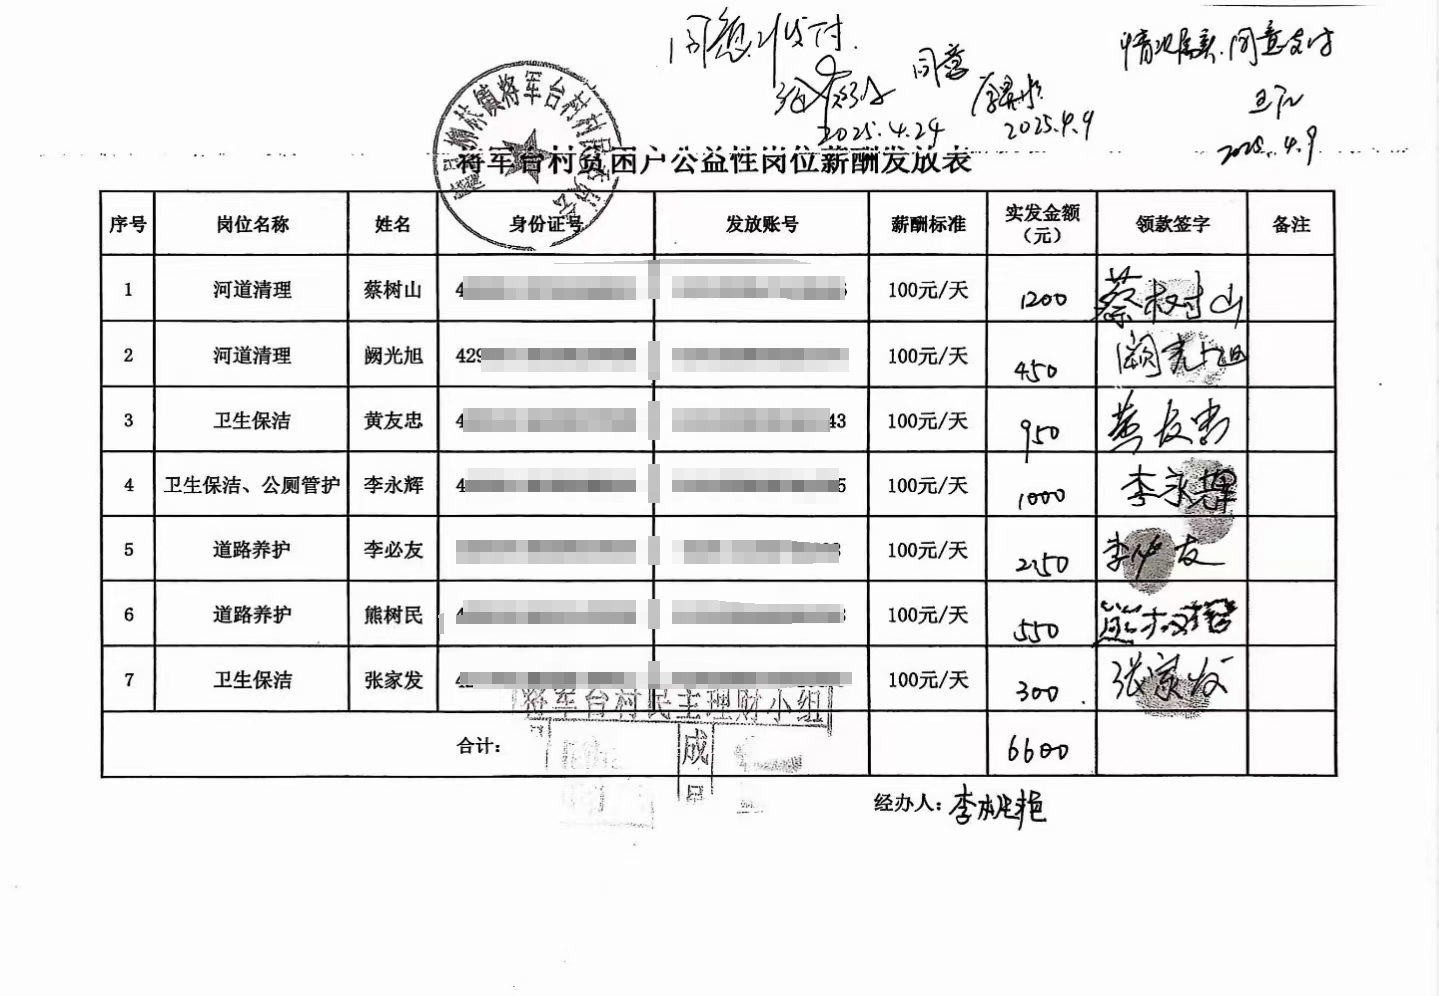 同意支付
2025.4.24
同意
2025.4.9
情况属实,同意支付
2025.4.9
柳林镇将军台村村民委员会
将军台村贫困户公益性岗位薪酬发放表
序号 岗位名称 姓名 身份证号 发放账号 薪酬标准 实发金额(元) 领款签字 备注
1 河道清理 蔡树山 4 100元/天 1200 蔡树山
2 河道清理 阙光旭 429 100元/天 450 阙光旭
3 卫生保洁 黄友忠 4 43 100元/天 950 黄友忠
4 卫生保洁、公厕管护 李永辉 4 5 100元/天 1000 李永辉
5 道路养护 李必友 100元/天 2150 李必友
6 道路养护 熊树民 100元/天 550 熊树民
7 卫生保洁 张家发 100元/天 300 张家发
将军台村民主理财小组
成员
合计: 6600
经办人: